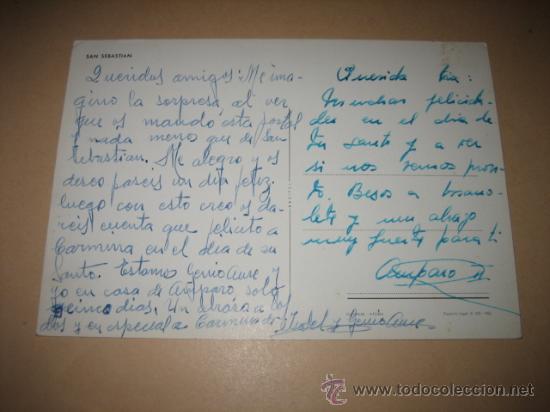 SAN SEBASTIAN
Queridos amigos: Me ima-
gino la sorpresa al ver
que os mando esta postal
y nada menos que de San
Sebastian. Me alegro y os
deseo paseis un dia feliz,
luego con esto creo os da-
reis cuenta que felicito a
Carmina en el dia de su
santo. Estamos y
yo en casa de Amparo solo
cinco dias. Un abrazo a
dos y en especial a Carmina de
Isabel y
Querida tia:
Muchas felicida-
des en el dia de
tu santo y a ver
si nos vemos pron-
to. Besos a
y un abrazo
muy fuerte para ti
Amparo
todocoleccion
www.todocoleccion.net